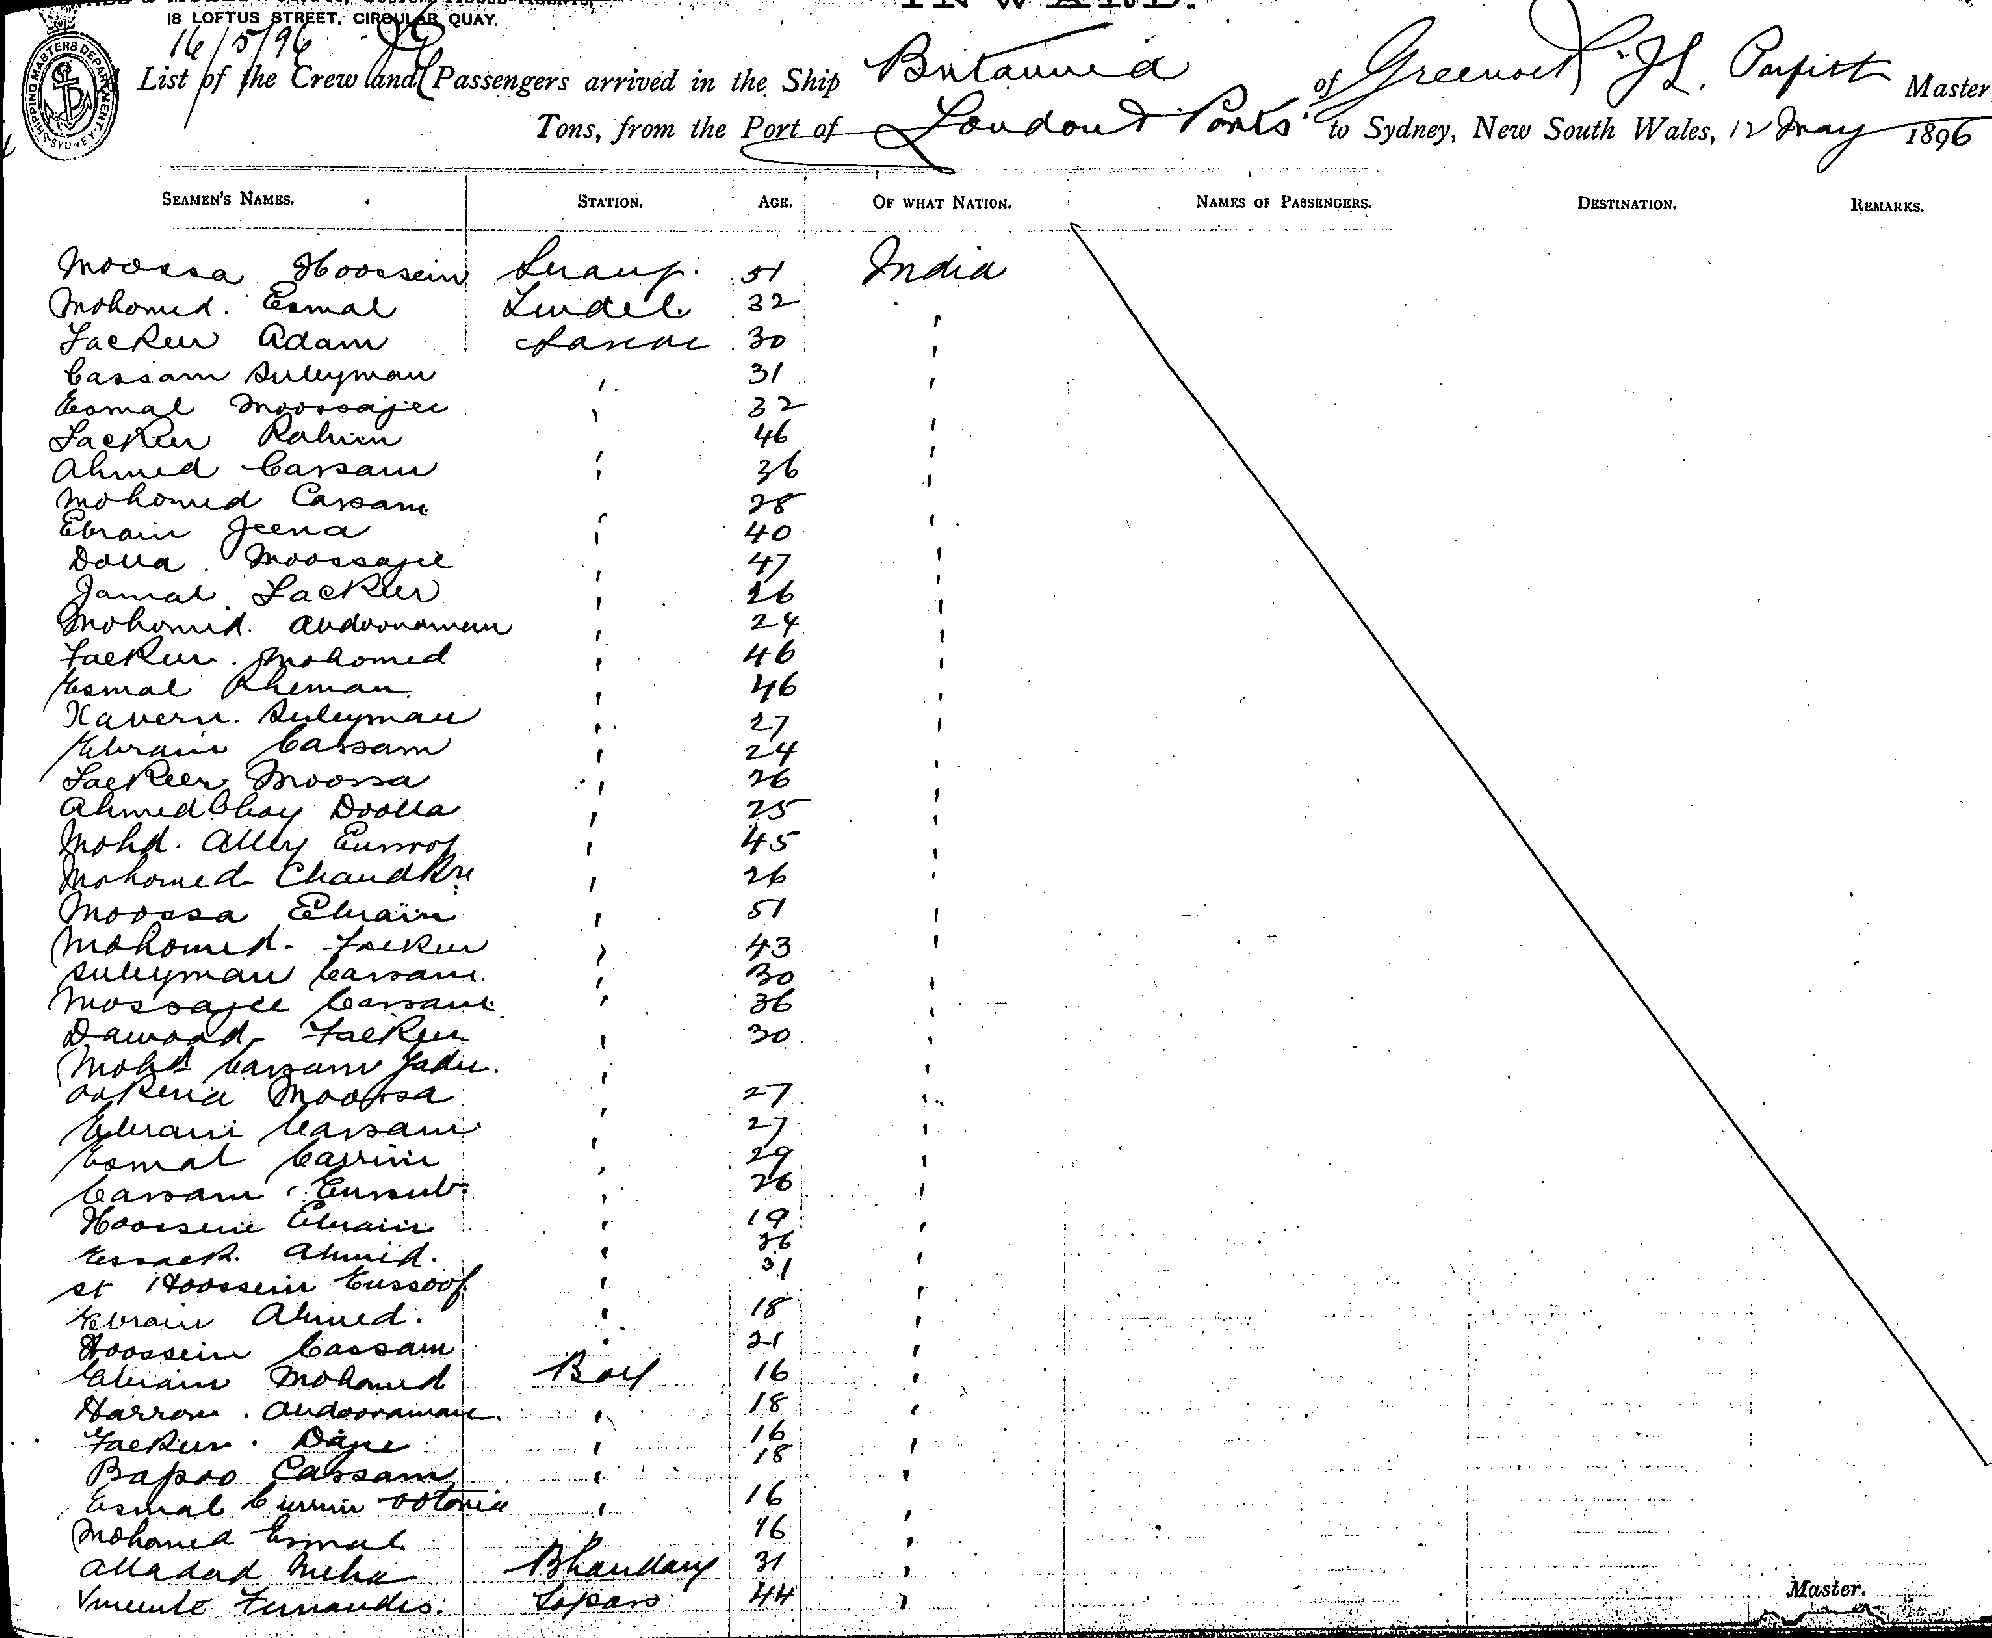 18 LOFTUS STREET, CIRCULAR QUAY.
INWARD.
16/5/96
SHIPPING MASTERS DEPARTMENT SYDNEY
List of the Crew and Passengers arrived in the Ship Britannia of Greenock J L. Parfitt Master
Tons, from the Port of London & Ports to Sydney, New South Wales, 12 May 1896
SEAMEN'S NAMES. STATION. AGE. OF WHAT NATION. NAMES OF PASSENGERS. DESTINATION. REMARKS.
Moossa Hoossein 51 India
Mohomed. Esmal Tindel. 32 "
Fackeer Adam Lascar 30 "
Cassam Suleyman " 31 "
Esmal Moossajee " 32 "
Fackeer Rahim 46 "
Ahmed Cassam " 36 "
Mohomed Cassam 28
Ebraim Jeena " 40 "
Dolla Moossajee " 47 "
Jamal Fackeer " 26 "
Mohomed. Audoonamun " 24 "
Fackeer. Mohomed " 46 "
Esmal Rheman " 46 "
Suleyman " 27 "
Ebraim Cassam " 24 "
Fackeer Moossa " 26 "
Ahmed Doolla " 25 "
Mohd. Alley Eusoof " 45 "
Mohomed " 26 "
Moossa Ebraim " 51 "
Mohomed. Fackeer " 43 "
Suleyman Cassam. " 30
Mossajee Cassam " 36 "
Dawood Fackeer " 30 "
Mohd Cassam "
Moossa " 27 "
Ebraim Cassam " 27 "
Esmal " 29 "
Cassam " 26 "
Hoossein Ebraim " 19 "
Essack Ahmed. " 36 "
Hoossein Eussoof " 31 "
Ebraim Ahmed. " 18 "
Hoossein Cassam " 21 "
Ebraim Mohomed Boy 16 "
Harron. Audoonaman " 18 "
Fackeer. " 16 "
Bapoo Cassam " 18 "
Esmal " 16 "
Mohomed Esmal 16 "
Alladad Bhandary 31 "
Vincente Fernandes. Topass 44 "
Master.